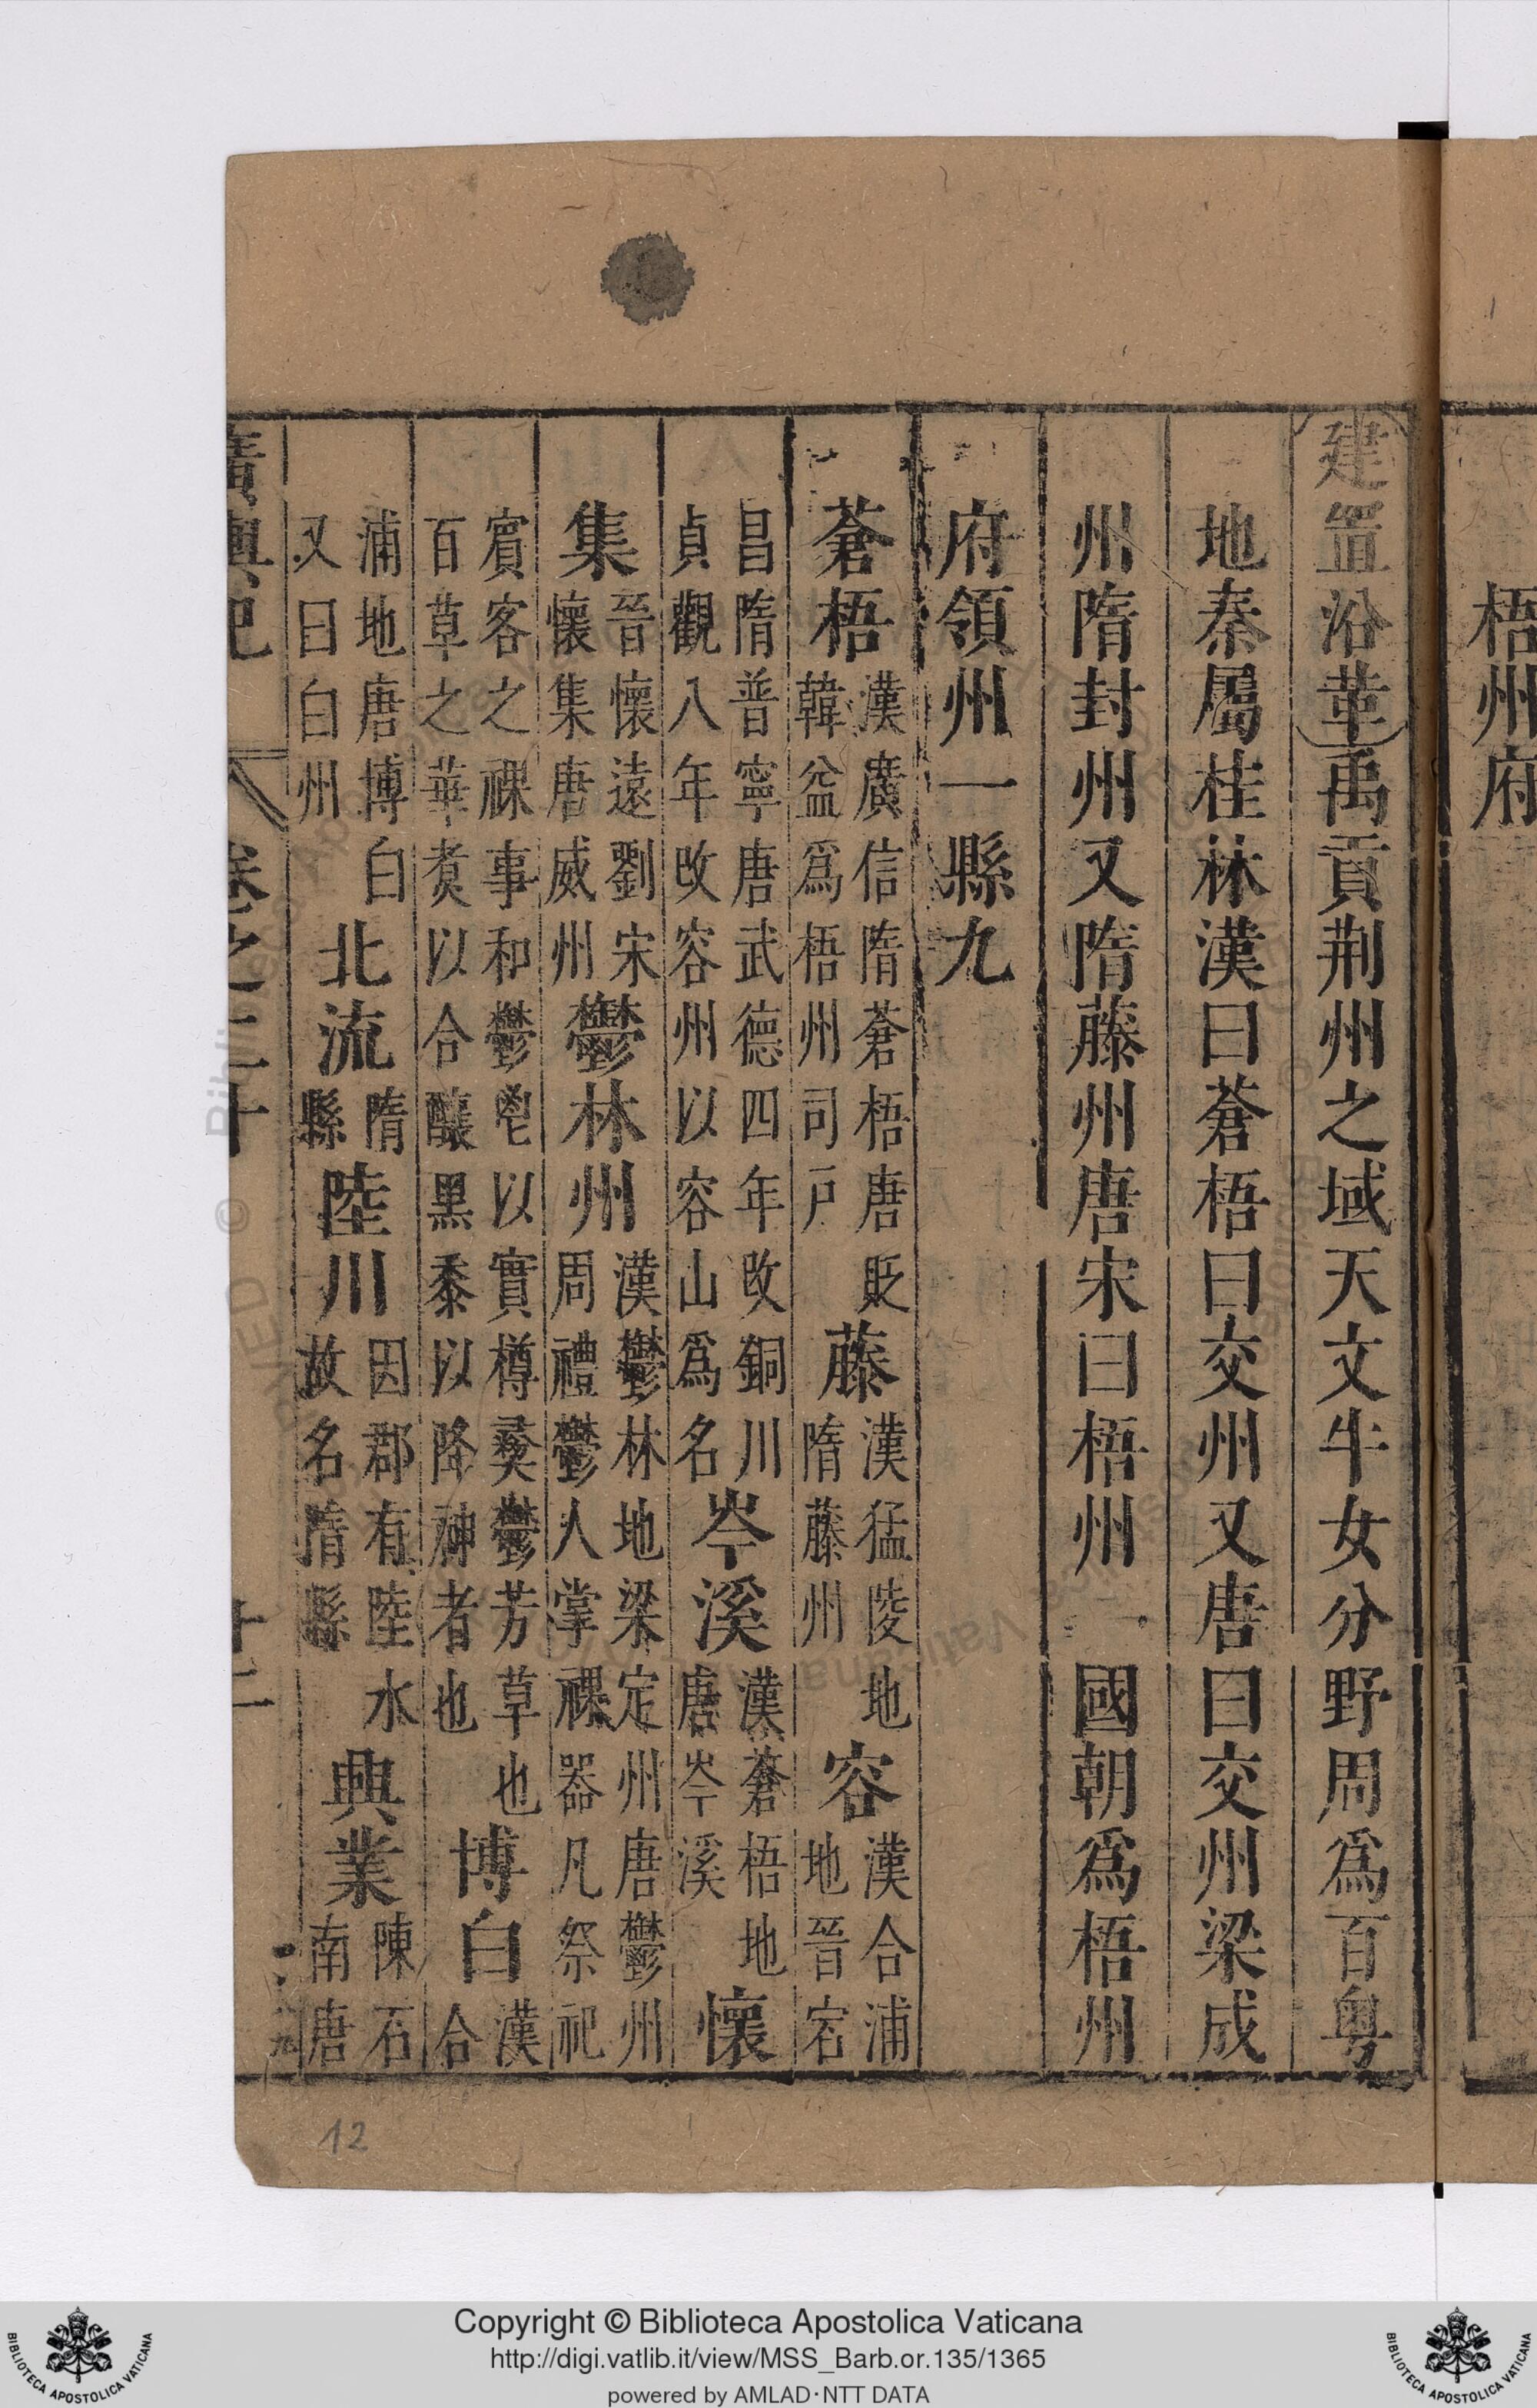 梧州府
建置沿革禹貢荆州之域天文牛女分野周爲百粤
地秦屬桂林漢曰蒼梧曰交州又唐曰交州梁成
州隋封州又隋藤州唐宋曰梧州 國朝爲梧州
府領州一縣九
蒼梧漢廣信隋蒼梧唐貶
韓瓫爲梧州司戸藤漢猛陵地
隋藤州容漢合浦
地晉宕
昌隋普寧唐武德四年改銅川
貞觀八年改容州以容山爲名岑溪漢蒼梧地
唐岑溪懷
集晉懷遠劉宋
懷集唐威州鬱林州漢鬱林地梁定州唐鬱州
周禮鬱人掌祼器凡祭祀
賓客之祼事和鬱鬯以實樽彛鬱芳草也
百草之華煑以合釀黑黍以降神者也博白漢
合
浦地唐博白
又曰白州北流隋
縣陸川因郡有陸水
故名隋縣興業陳石
南唐
廣輿記 卷之二十 十二
12
Copyright © Biblioteca Apostolica Vaticana
http://digi.vatlib.it/view/MSS_Barb.or.135/1365
powered by AMLAD·NTT DATA
BIBLIOTECA APOSTOLICA VATICANA
BIBLIOTECA APOSTOLICA VATICANA